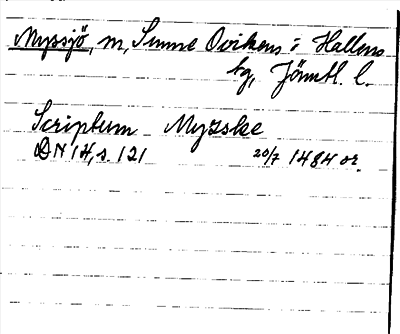 Myssjö, m, Sunne Ovikens i Hallens
tg, Jämtl. l.
Scriptum Myzske
DN 14, s. 121 20/7 1484 or.